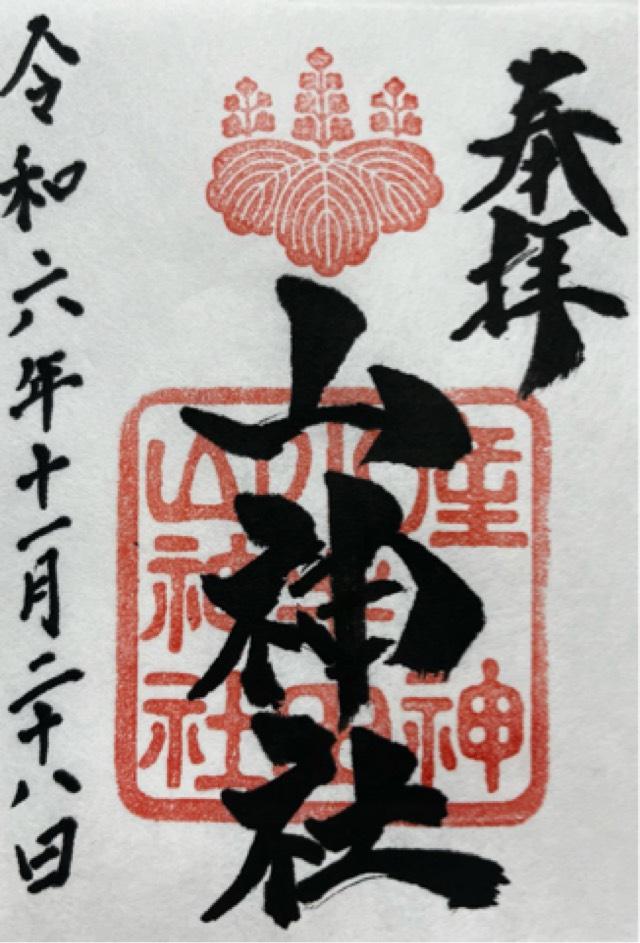 奉拝
山神社
令和六年十一月二十八日
産
神
山神社